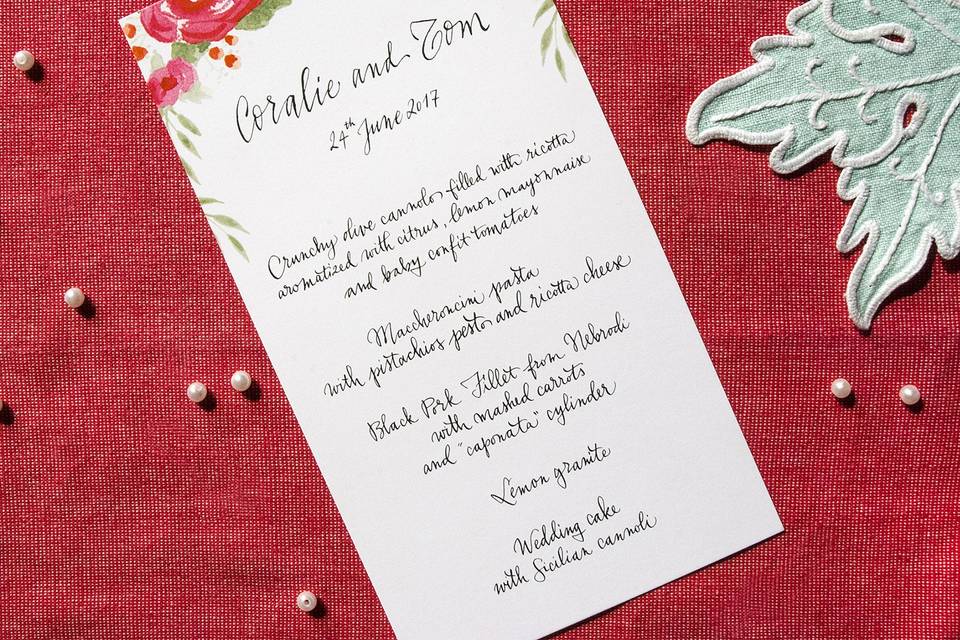 Coralie and Tom
24th June 2017
Crunchy olive cannolo filled with ricotta
aromatized with citrus, lemon mayonnaise
and baby confit tomatoes
Maccheroncini pasta
with pistachios pesto and ricotta cheese
Black Pork Fillet from Nebrodi
with mashed carrots
and "caponata" cylinder
Lemon granite
Wedding cake
with Sicilian cannoli